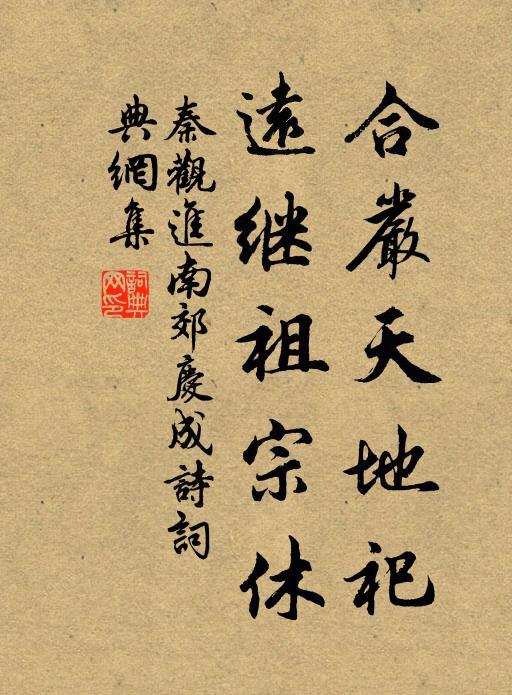 合嚴天地祀
遠继祖宗休
秦觀進南郊慶成詩詞
典網集
詞典
网印